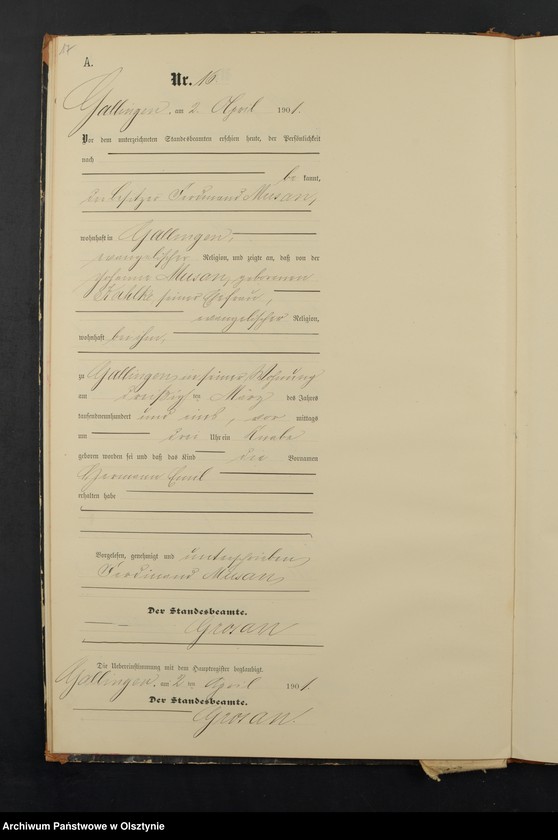 17
A.
Nr. 16
Gallingen, am 2. April 1901.
Vor dem unterzeichneten Standesbeamten erschien heute, der Persönlichkeit
nach
be kannt,
der Besitzer Ferdinand Musan,
wohnhaft in Gallingen,
evangelischer Religion, und zeigte an, daß von der
Johanne Musan, geborenen
seiner Ehefrau,
evangelischer Religion,
wohnhaft bei ihm,
zu Gallingen in seiner Wohnung
am dreißig ten März des Jahres
tausendneunhundert und eins, vor mittags
um drei Uhr ein Knabe
geboren worden sei und daß das Kind die Vornamen
Hermann Emil
erhalten habe
Vorgelesen, genehmigt und unterschrieben
Ferdinand Musan
Der Standesbeamte.
Grosan
Die Uebereinstimmung mit dem Hauptregister beglaubigt.
Gallingen, am 2 ten April 1901.
Der Standesbeamte.
Grosan.
Archiwum Państwowe w Olsztynie